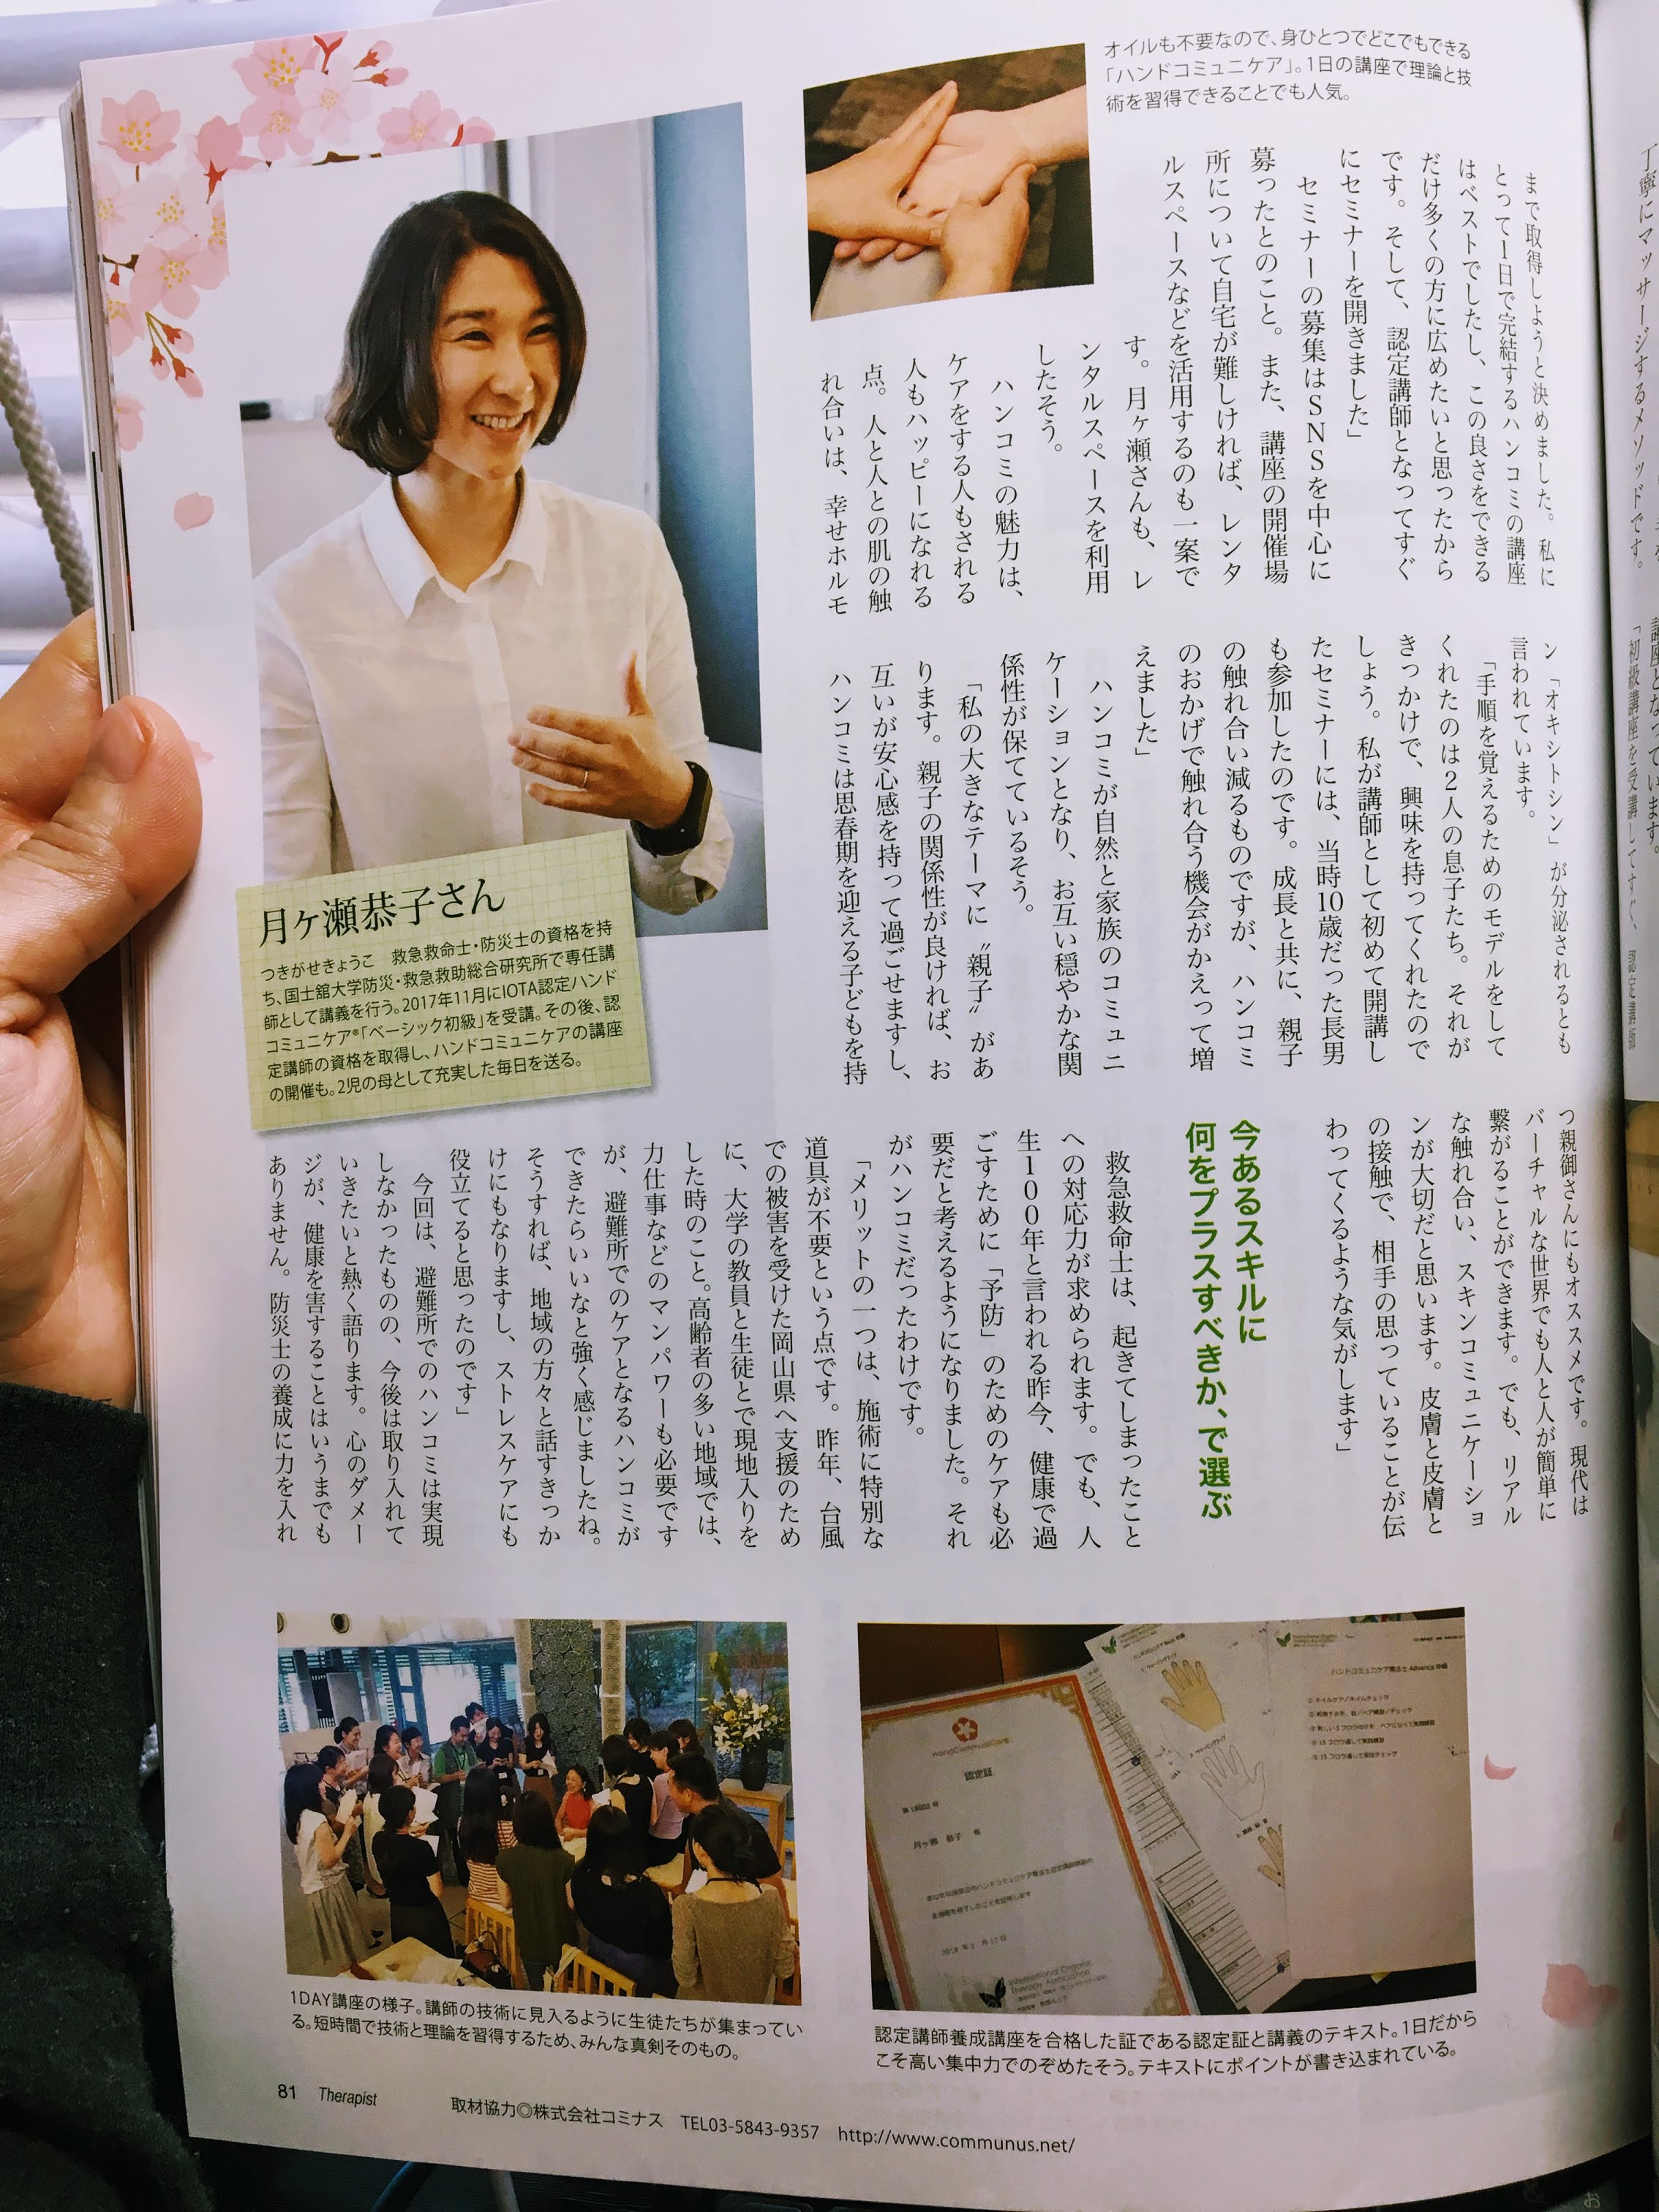 オイルも不要なので、身ひとつでどこでもできる
「ハンドコミュニケア」。1日の講座で理論と技
術を習得できることでも人気。
まで取得しようと決めました。私に
とって1日で完結するハンコミの講座
はベストでしたし、この良さをできる
だけ多くの方に広めたいと思ったから
です。そして、認定講師となってすぐ
にセミナーを開きました」
セミナーの募集はSNSを中心に
募ったとのこと。また、講座の開催場
所について自宅が難しければ、レンタ
ルスペースなどを活用するのも一案で
す。月ヶ瀬さんも、レ
ンタルスペースを利用
したそう。
ハンコミの魅力は、
ケアをする人もされる
人もハッピーになれる
点。人と人との肌の触
れ合いは、幸せホルモ
ン「オキシトシン」が分泌されるとも
言われています。
「手順を覚えるためのモデルをして
くれたのは2人の息子たち。それが
きっかけで、興味を持ってくれたので
しょう。私が講師として初めて開講し
たセミナーには、当時10歳だった長男
も参加したのです。成長と共に、親子
の触れ合い減るものですが、ハンコミ
のおかげで触れ合う機会がかえって増
えました」
ハンコミが自然と家族のコミュニ
ケーションとなり、お互い穏やかな関
係性が保てているそう。
「私の大きなテーマに〝親子〟があ
ります。親子の関係性が良ければ、お
互いが安心感を持って過ごせますし、
ハンコミは思春期を迎える子どもを持
つ親御さんにもオススメです。現代は
バーチャルな世界でも人と人が簡単に
繋がることができます。でも、リアル
な触れ合い、スキンコミュニケーショ
ンが大切だと思います。皮膚と皮膚と
の接触で、相手の思っていることが伝
わってくるような気がします」
今あるスキルに
何をプラスすべきか、で選ぶ
救急救命士は、起きてしまったこと
への対応力が求められます。でも、人
生100年と言われる昨今、健康で過
ごすために「予防」のためのケアも必
要だと考えるようになりました。それ
がハンコミだったわけです。
「メリットの一つは、施術に特別な
道具が不要という点です。昨年、台風
での被害を受けた岡山県へ支援のため
に、大学の教員と生徒とで現地入りを
した時のこと。高齢者の多い地域では、
力仕事などのマンパワーも必要です
が、避難所でのケアとなるハンコミが
できたらいいなと強く感じましたね。
そうすれば、地域の方々と話すきっか
けにもなりますし、ストレスケアにも
役立てると思ったのです」
今回は、避難所でのハンコミは実現
しなかったものの、今後は取り入れて
いきたいと熱く語ります。心のダメー
ジが、健康を害することはいうまでも
ありません。防災士の養成に力を入れ
月ヶ瀬恭子さん
つきがせきょうこ　救急救命士・防災士の資格を持
ち、国士舘大学防災・救急救助総合研究所で専任講
師として講義を行う。2017年11月にIOTA認定ハンド
コミュニケア®「ベーシック初級」を受講。その後、認
定講師の資格を取得し、ハンドコミュニケアの講座
の開催も。2児の母として充実した毎日を送る。
HandCommuniCare
認定証
月ヶ瀬 恭子
International Organic
Therapy Association
ハンドコミュニケア療法士Advance中級
1DAY講座の様子。講師の技術に見入るように生徒たちが集まってい
る。短時間で技術と理論を習得するため、みんな真剣そのもの。
認定講師養成講座を合格した証である認定証と講義のテキスト。1日だから
こそ高い集中力でのぞめたそう。テキストにポイントが書き込まれている。
81 Therapist
取材協力◎株式会社コミナス　TEL03-5843-9357　http://www.communus.net/
丁寧にマッサージするメソッドです。
講座となっています。
「初級講座を受講してすぐ、認定講師